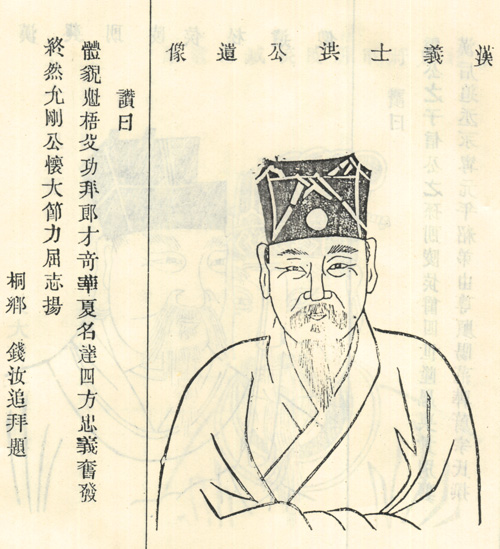 漢義士洪公遺像
讚曰
體貌魁梧殳功拜郎才奇華夏名達四方忠義奮發
終然允剛公懷大節力屈志揚
桐鄉 錢汝追拜題